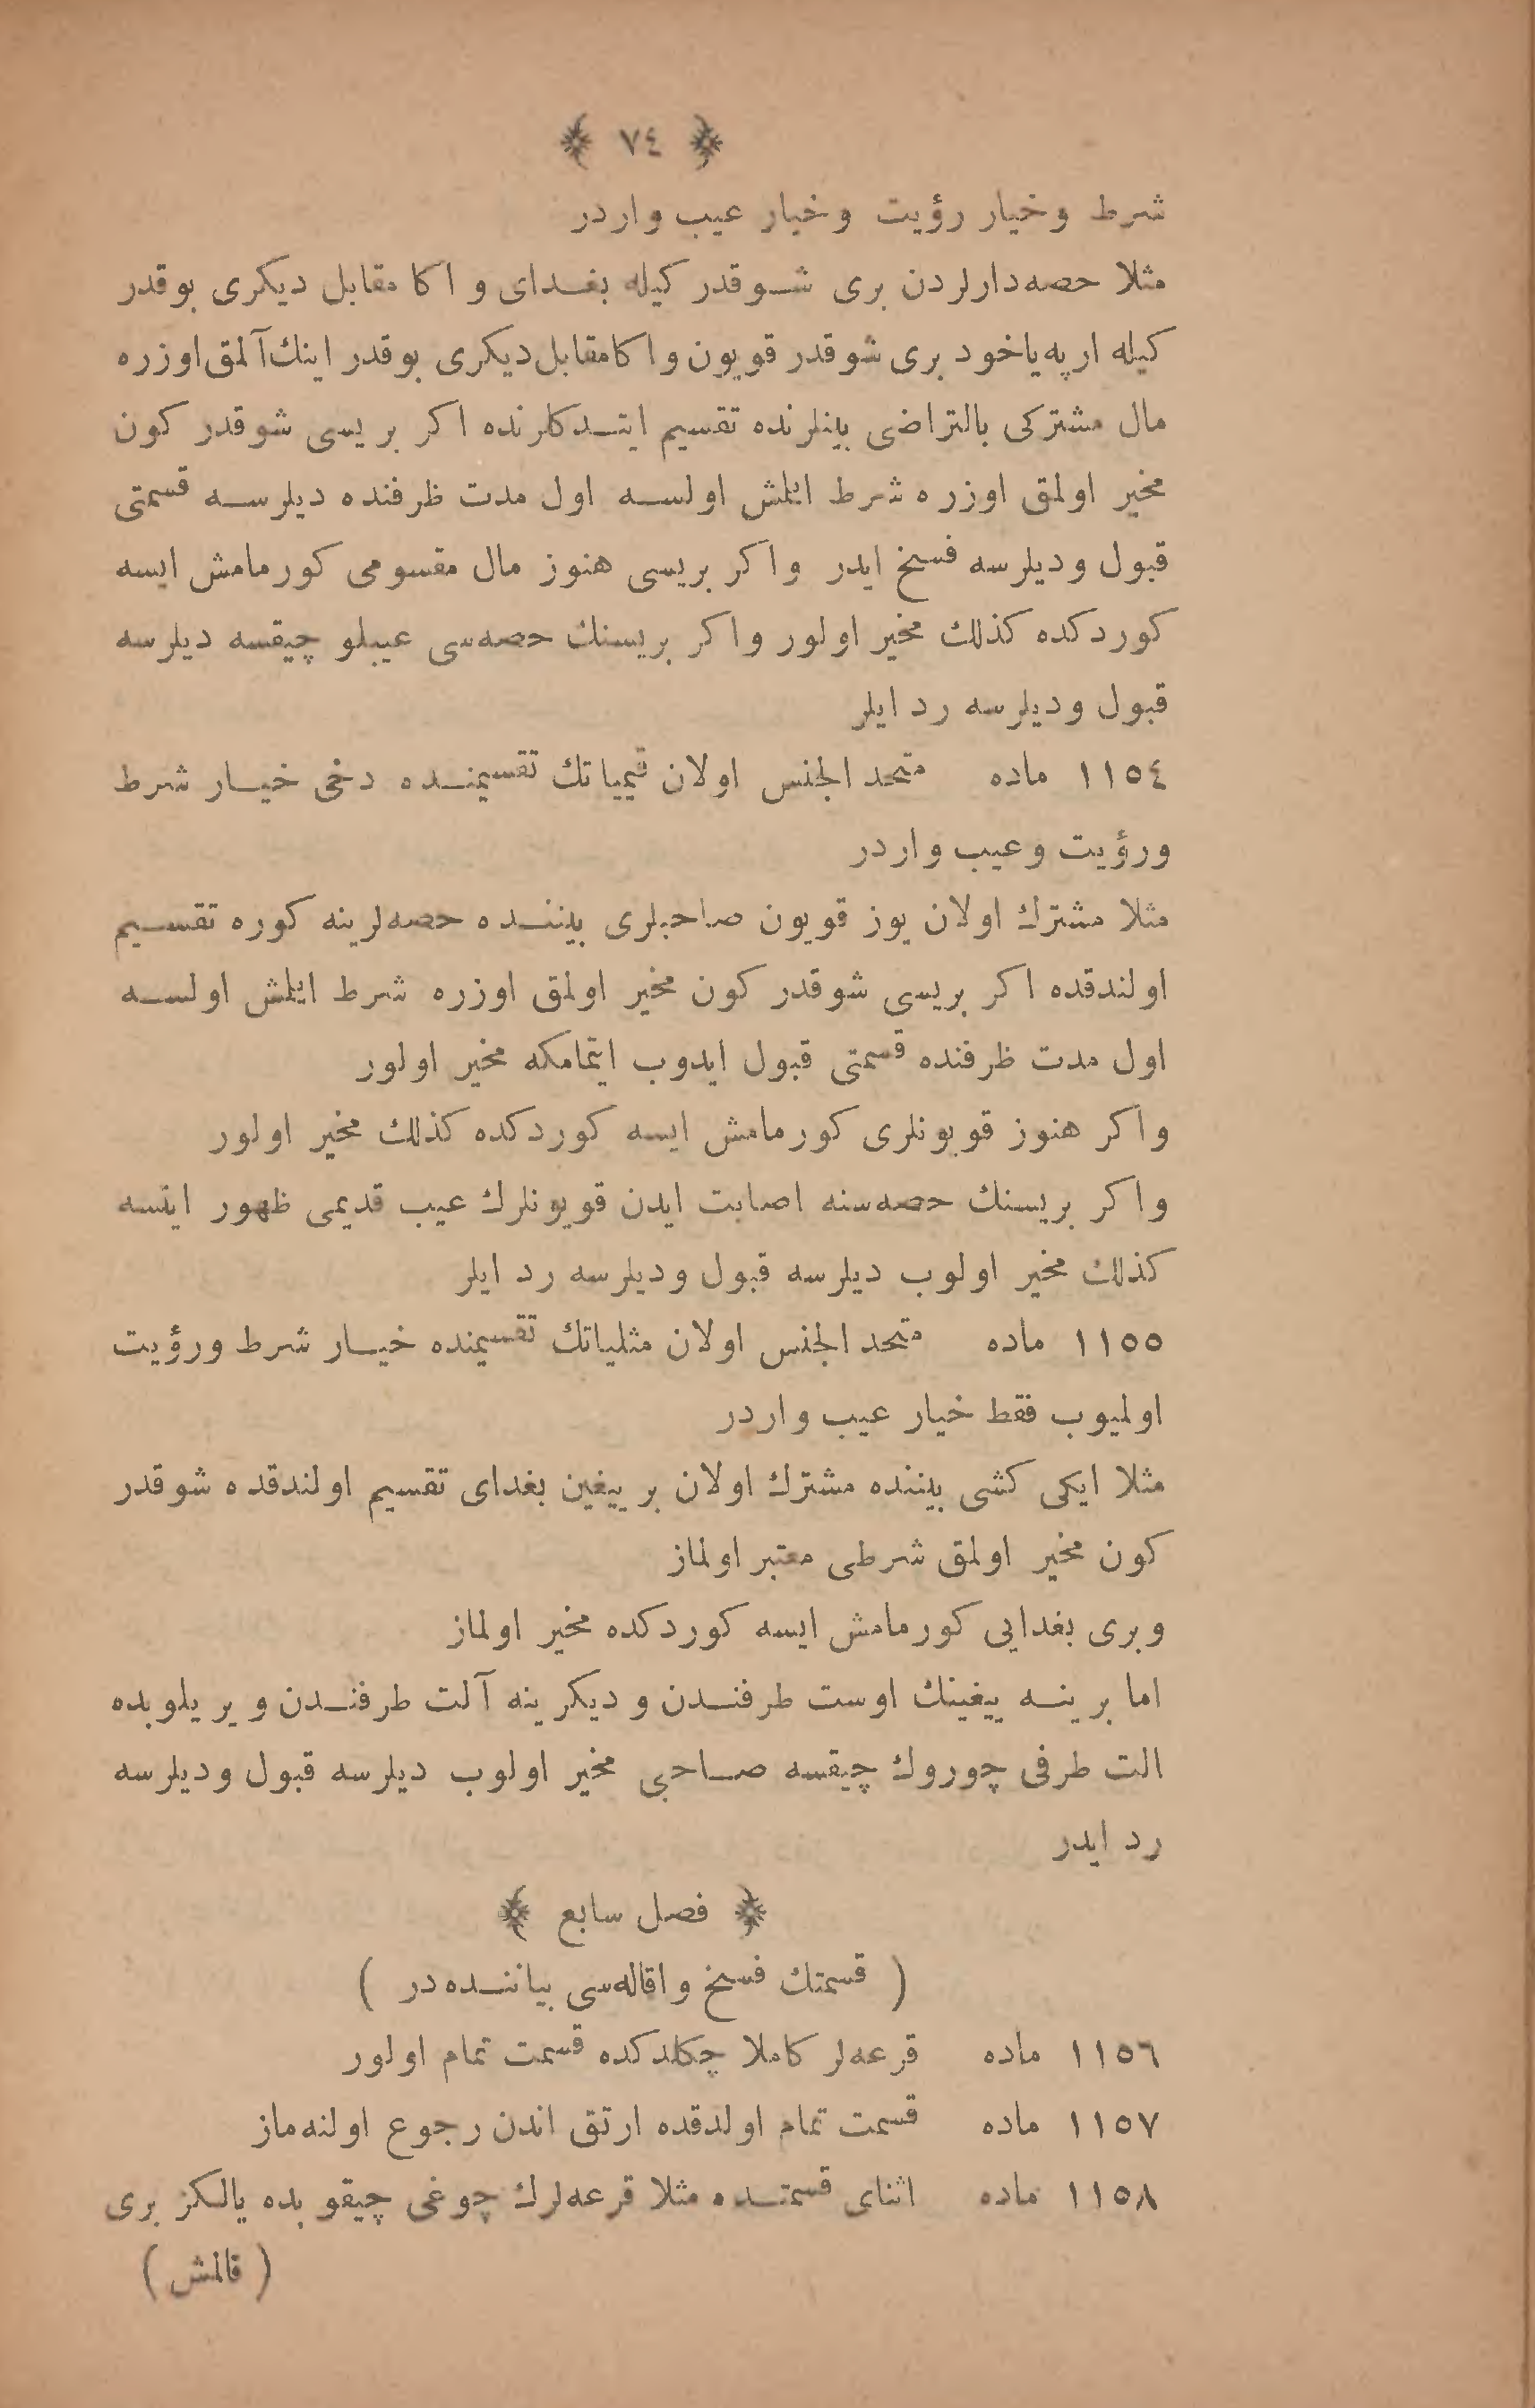 ﴿ ٧٤ ﴾
شرط وخيار رؤيت وخيار عيب واردر
مثلا حصه‌دارلردن برى شوقدر كيله بغداى واكا مقابل ديكرى بوقدر
كيله ارپه ياخود برى شوقدر قويون واكامقابل ديكرى بوقدر اينك آلمق اوزره
مال مشتركى بالتراضى بينلرنده تقسيم ايتدكلرنده اكر بريسى شوقدر كون
مخير اولمق اوزره شرط ايلمش اولسه اول مدت ظرفنده ديلرسه قسمتى
قبول وديلرسه فسخ ايدر واكر بريسى هنوز مال مقسومى كورمامش ايسه
كوردكده كذلك مخير اولور واكر بريسنك حصه‌سى عيبلو چيقسه ديلرسه
قبول وديلرسه رد ايلر
١١٥٤ ماده متحد الجنس اولان قيمياتك تقسيمنده دخى خيار شرط
ورؤيت وعيب واردر
مثلا مشترك اولان يوز قويون صاحبلرى بيننده حصه‌لرينه كوره تقسيم
اولندقده اكر بريسى شوقدر كون مخير اولمق اوزره شرط ايلمش اولسه
اول مدت ظرفنده قسمتى قبول ايدوب ايتمامكه مخير اولور
واكر هنوز قويونلرى كورمامش ايسه كوردكده كذلك مخير اولور
واكر بريسنك حصه‌سنه اصابت ايدن قويونلرك عيب قديمى ظهور ايتسه
كذلك مخير اولوب ديلرسه قبول وديلرسه رد ايلر
١١٥٥ ماده متحد الجنس اولان مثلياتك تقسيمنده خيار شرط ورؤيت
اوليوب فقط خيار عيب واردر
مثلا ايكى كشى بيننده مشترك اولان بر ييغين بغداى تقسيم اولندقده شوقدر
كون مخير اولمق شرطى معتبر اولماز
وبرى بغدايى كورمامش ايسه كوردكده مخير اولماز
اما برينه ييغينك اوست طرفندن وديكرينه آلت طرفندن ويريلوبده
الت طرفى چوروك چيقسه صاحبى مخير اولوب ديلرسه قبول وديلرسه
رد ايدر
﴿ فصل سابع ﴾
( قسمتك فسخ واقاله‌سى بياننده‌در )
١١٥٦ ماده قرعه‌لر كاملا چكلدكده قسمت تمام اولور
١١٥٧ ماده قسمت تمام اولدقده ارتق اندن رجوع اولنه‌ماز
١١٥٨ ماده اثناى قسمتده مثلا قرعه‌لرك چوغى چيقوبده يالكز برى
( قالمش )